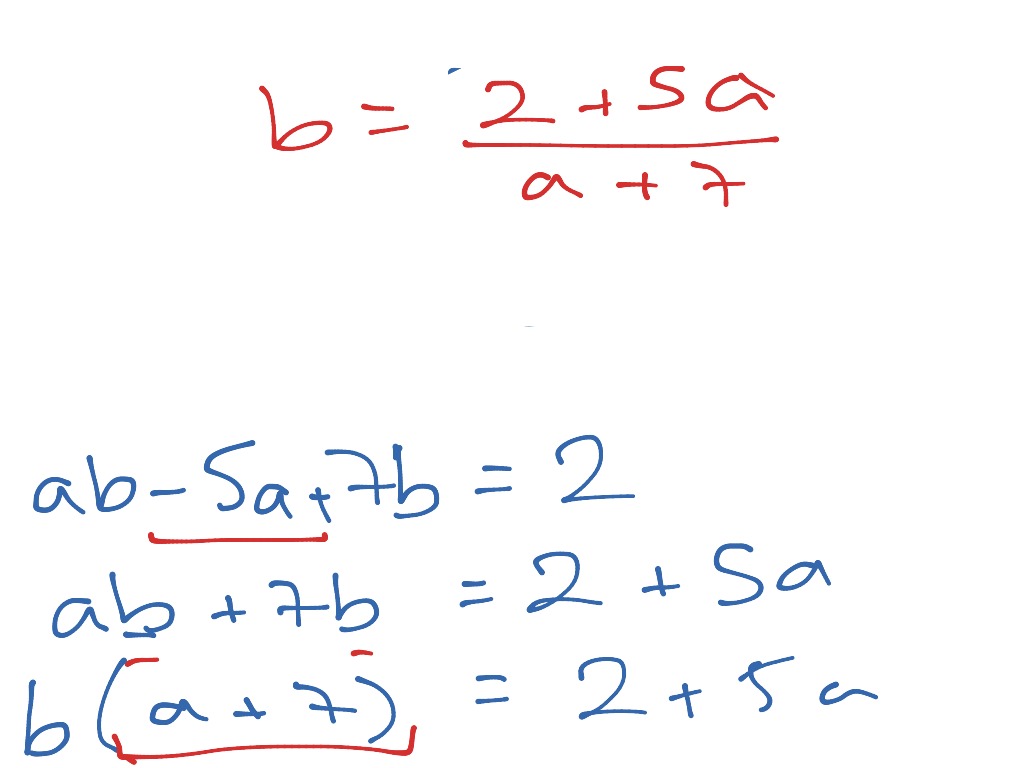 b = 2 + 5a
a + 7
ab - 5a + 7b = 2
ab + 7b = 2 + 5a
b(a + 7) = 2 + 5a